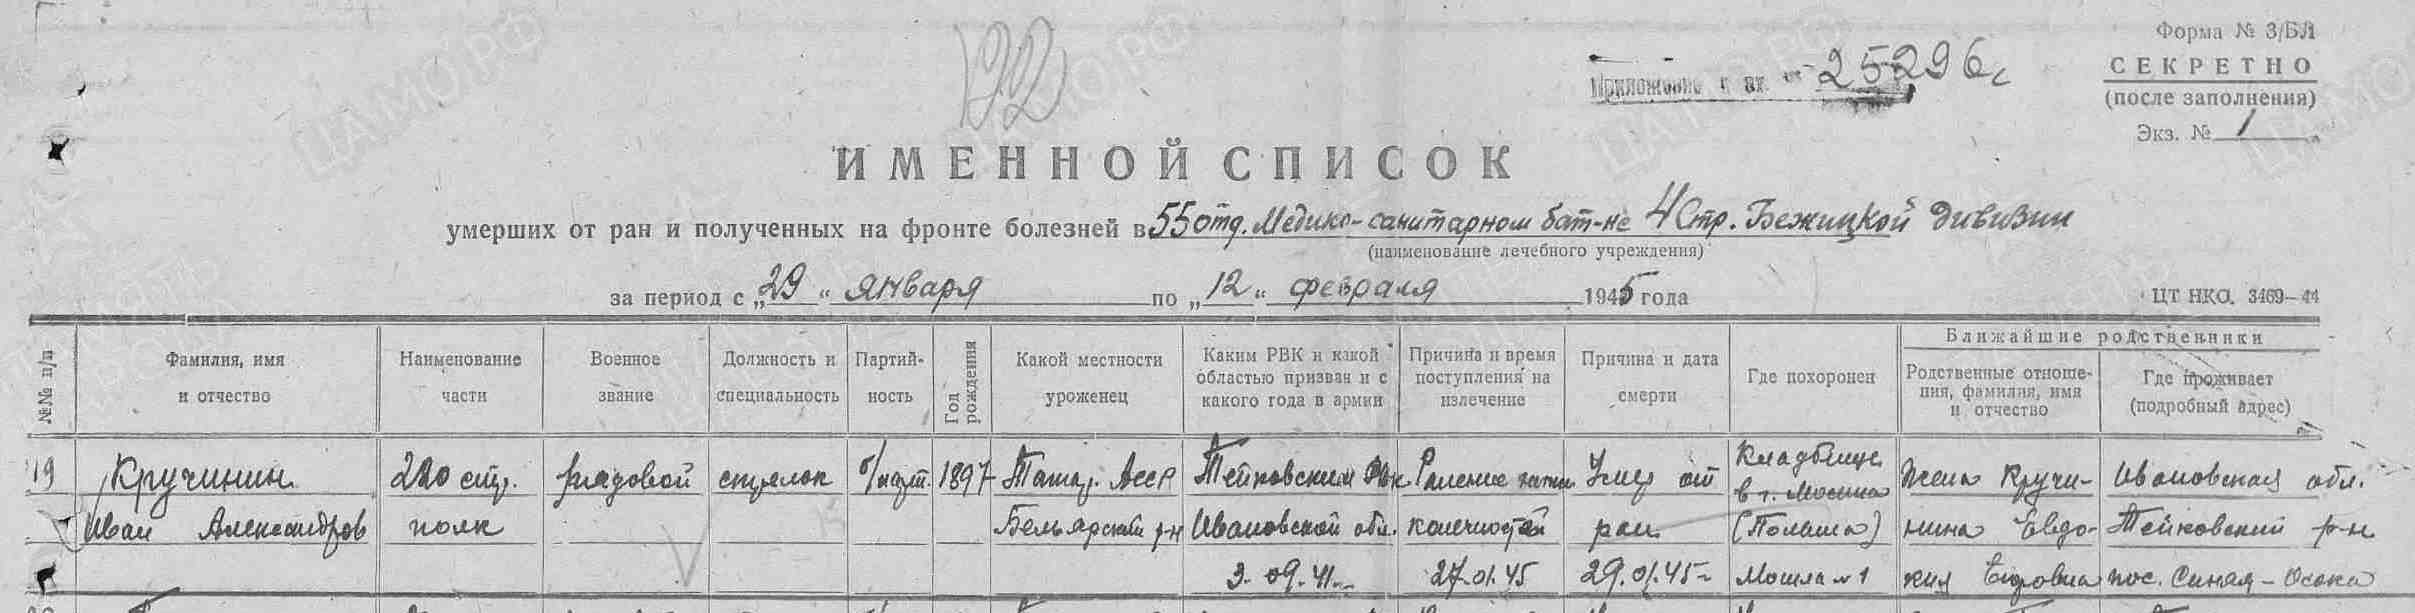 192
Форма № 3/БЛ
СЕКРЕТНО
(после заполнения)
Экз. № 1
Приложение к вх. 25296с
ИМЕННОЙ СПИСОК
умерших от ран и полученных на фронте болезней в 55 отд. Медико-санитарном бат-не 4 Стр. Бежицкой дивизии
(наименование лечебного учреждения)
за период с „29“ января по „12“ февраля 1945 года
ЦТ НКО. 3469–44
№№ п/п
Фамилия, имя
и отчество
Наименование
части
Военное
звание
Должность и
специальность
Партий-
ность
Год
рождения
Какой местности
уроженец
Каким РВК и какой
областью призван и с
какого года в армии
Причина и время
поступления на
излечение
Причина и дата
смерти
Где похоронен
Ближайшие родственники
Родственные отноше-
ния, фамилия, имя
и отчество
Где проживает
(подробный адрес)
19
Кручинин
Иван Александров
220 стр.
полк
рядовой
стрелок
б/парт.
1897
Татар. АССР
Бельярский р-н
Тейковским РВК
Ивановской обл.
3.09.41
Ранение
конечностей
27.01.45
Умер от
ран
29.01.45
Кладбище
в г. Мосина
(Польша)
Могила № 1
Жена Кручи-
нина Евдо-
кия Егоровна
Ивановская обл.
Тейковский р-н
пос. Синяя-Осока
ЦАМО.РФ